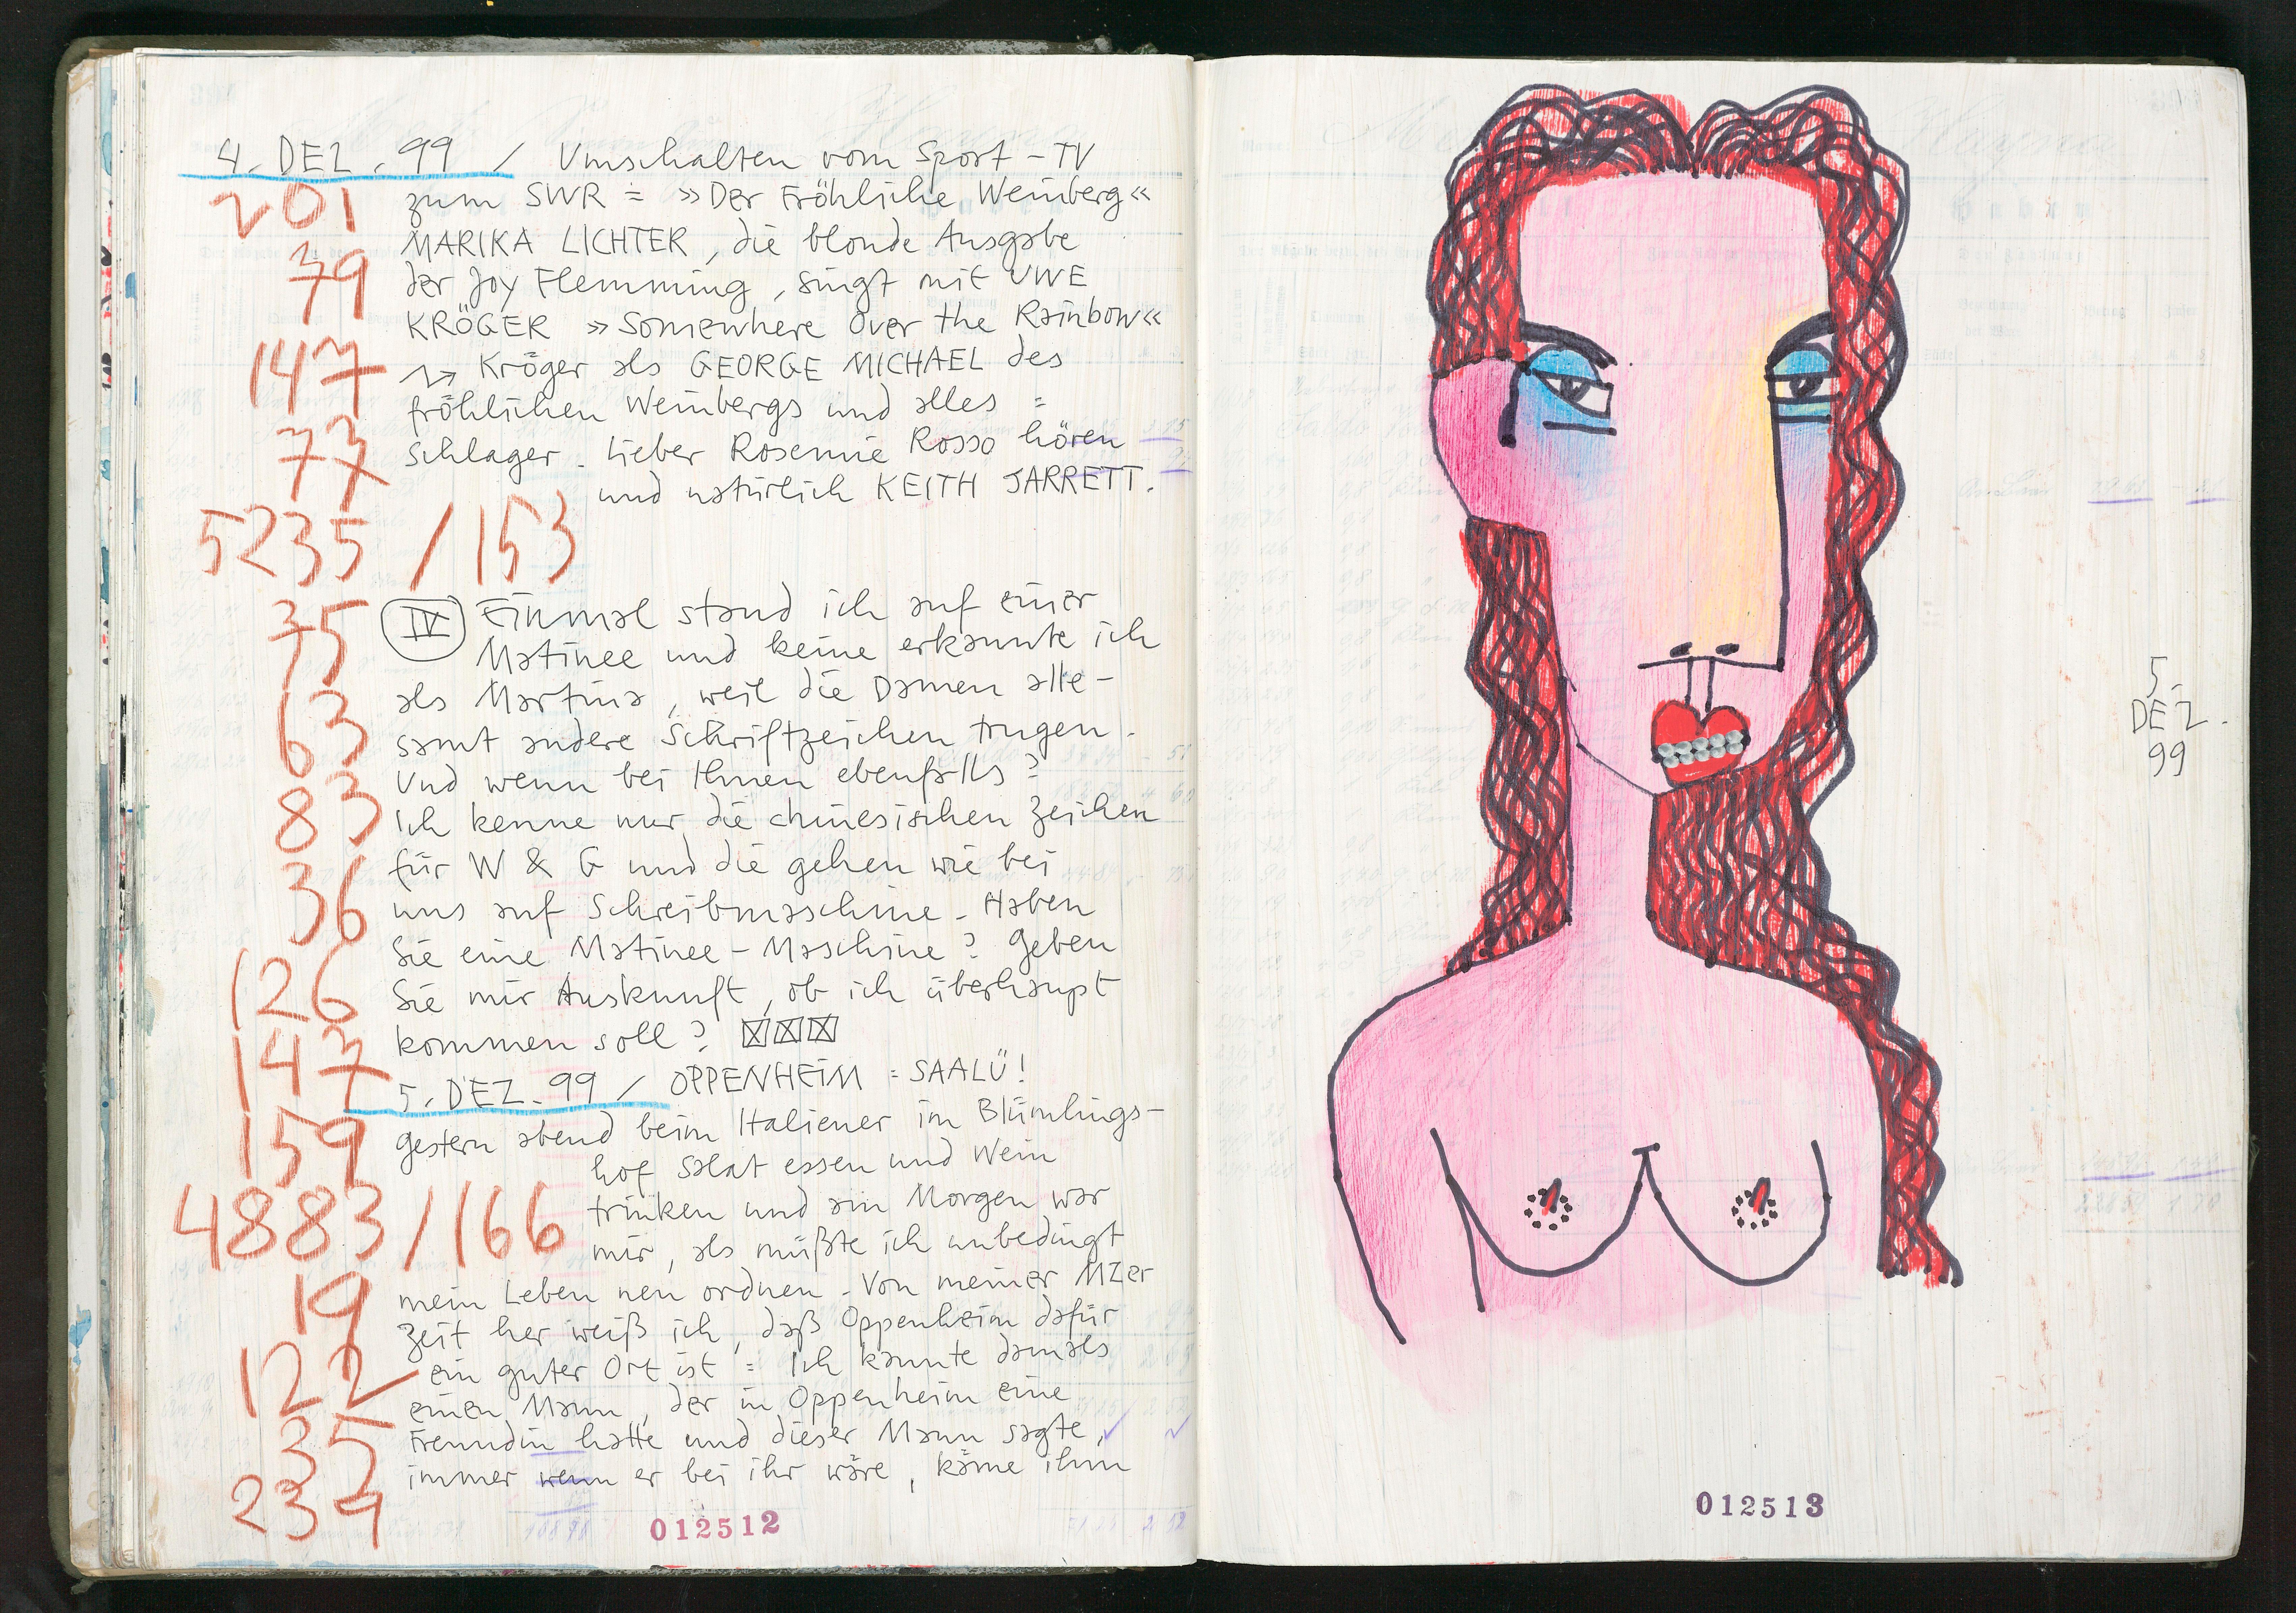 4. DEZ. 99 / Umschalten vom Sport-TV
201
zum SWR = »Der Fröhliche Weinberg«
MARIKA LICHTER, die blonde Ausgabe
79
der Joy Flemming, singt mit UWE
KRÖGER »Somewhere Over the Rainbow«
147
Kröger als GEORGE MICHAEL des
fröhlichen Weinbergs und alles =
77
Schlager. Lieber Rosemie Rosso hören
und natürlich KEITH JARRETT.
5235 / 153
75
IV Einmal stand ich auf einer
Matinee und keine erkannte ich
63
als Martina, weil die Damen alle-
samt andere Schriftzeichen trugen.
Und wenn bei Ihnen ebenfalls?
83
Ich kenne nur die chinesischen Zeichen
für W & G und die gehen wie bei
36
uns auf Schreibmaschine. Haben
Sie eine Matinee-Maschine? Geben
126
Sie mir Auskunft, ob ich überhaupt
kommen soll?
147
5. DEZ. 99 / OPPENHEIM = SAALÜ!
159
gestern abend beim Italiener im Blümlings-
hof Salat essen und Wein
4883 / 166
trinken und am Morgen war
mir, als müßte ich unbedingt
19
mein Leben neu ordnen. Von meiner MZer
Zeit her weiß ich, daß Oppenheim dafür
122
ein guter Ort ist = Ich kannte damals
einen Mann, der in Oppenheim eine
35
Freundin hatte und dieser Mann sagte,
immer wenn er bei ihr wäre, käme ihm
234
012512
5.
DEZ.
99
012513